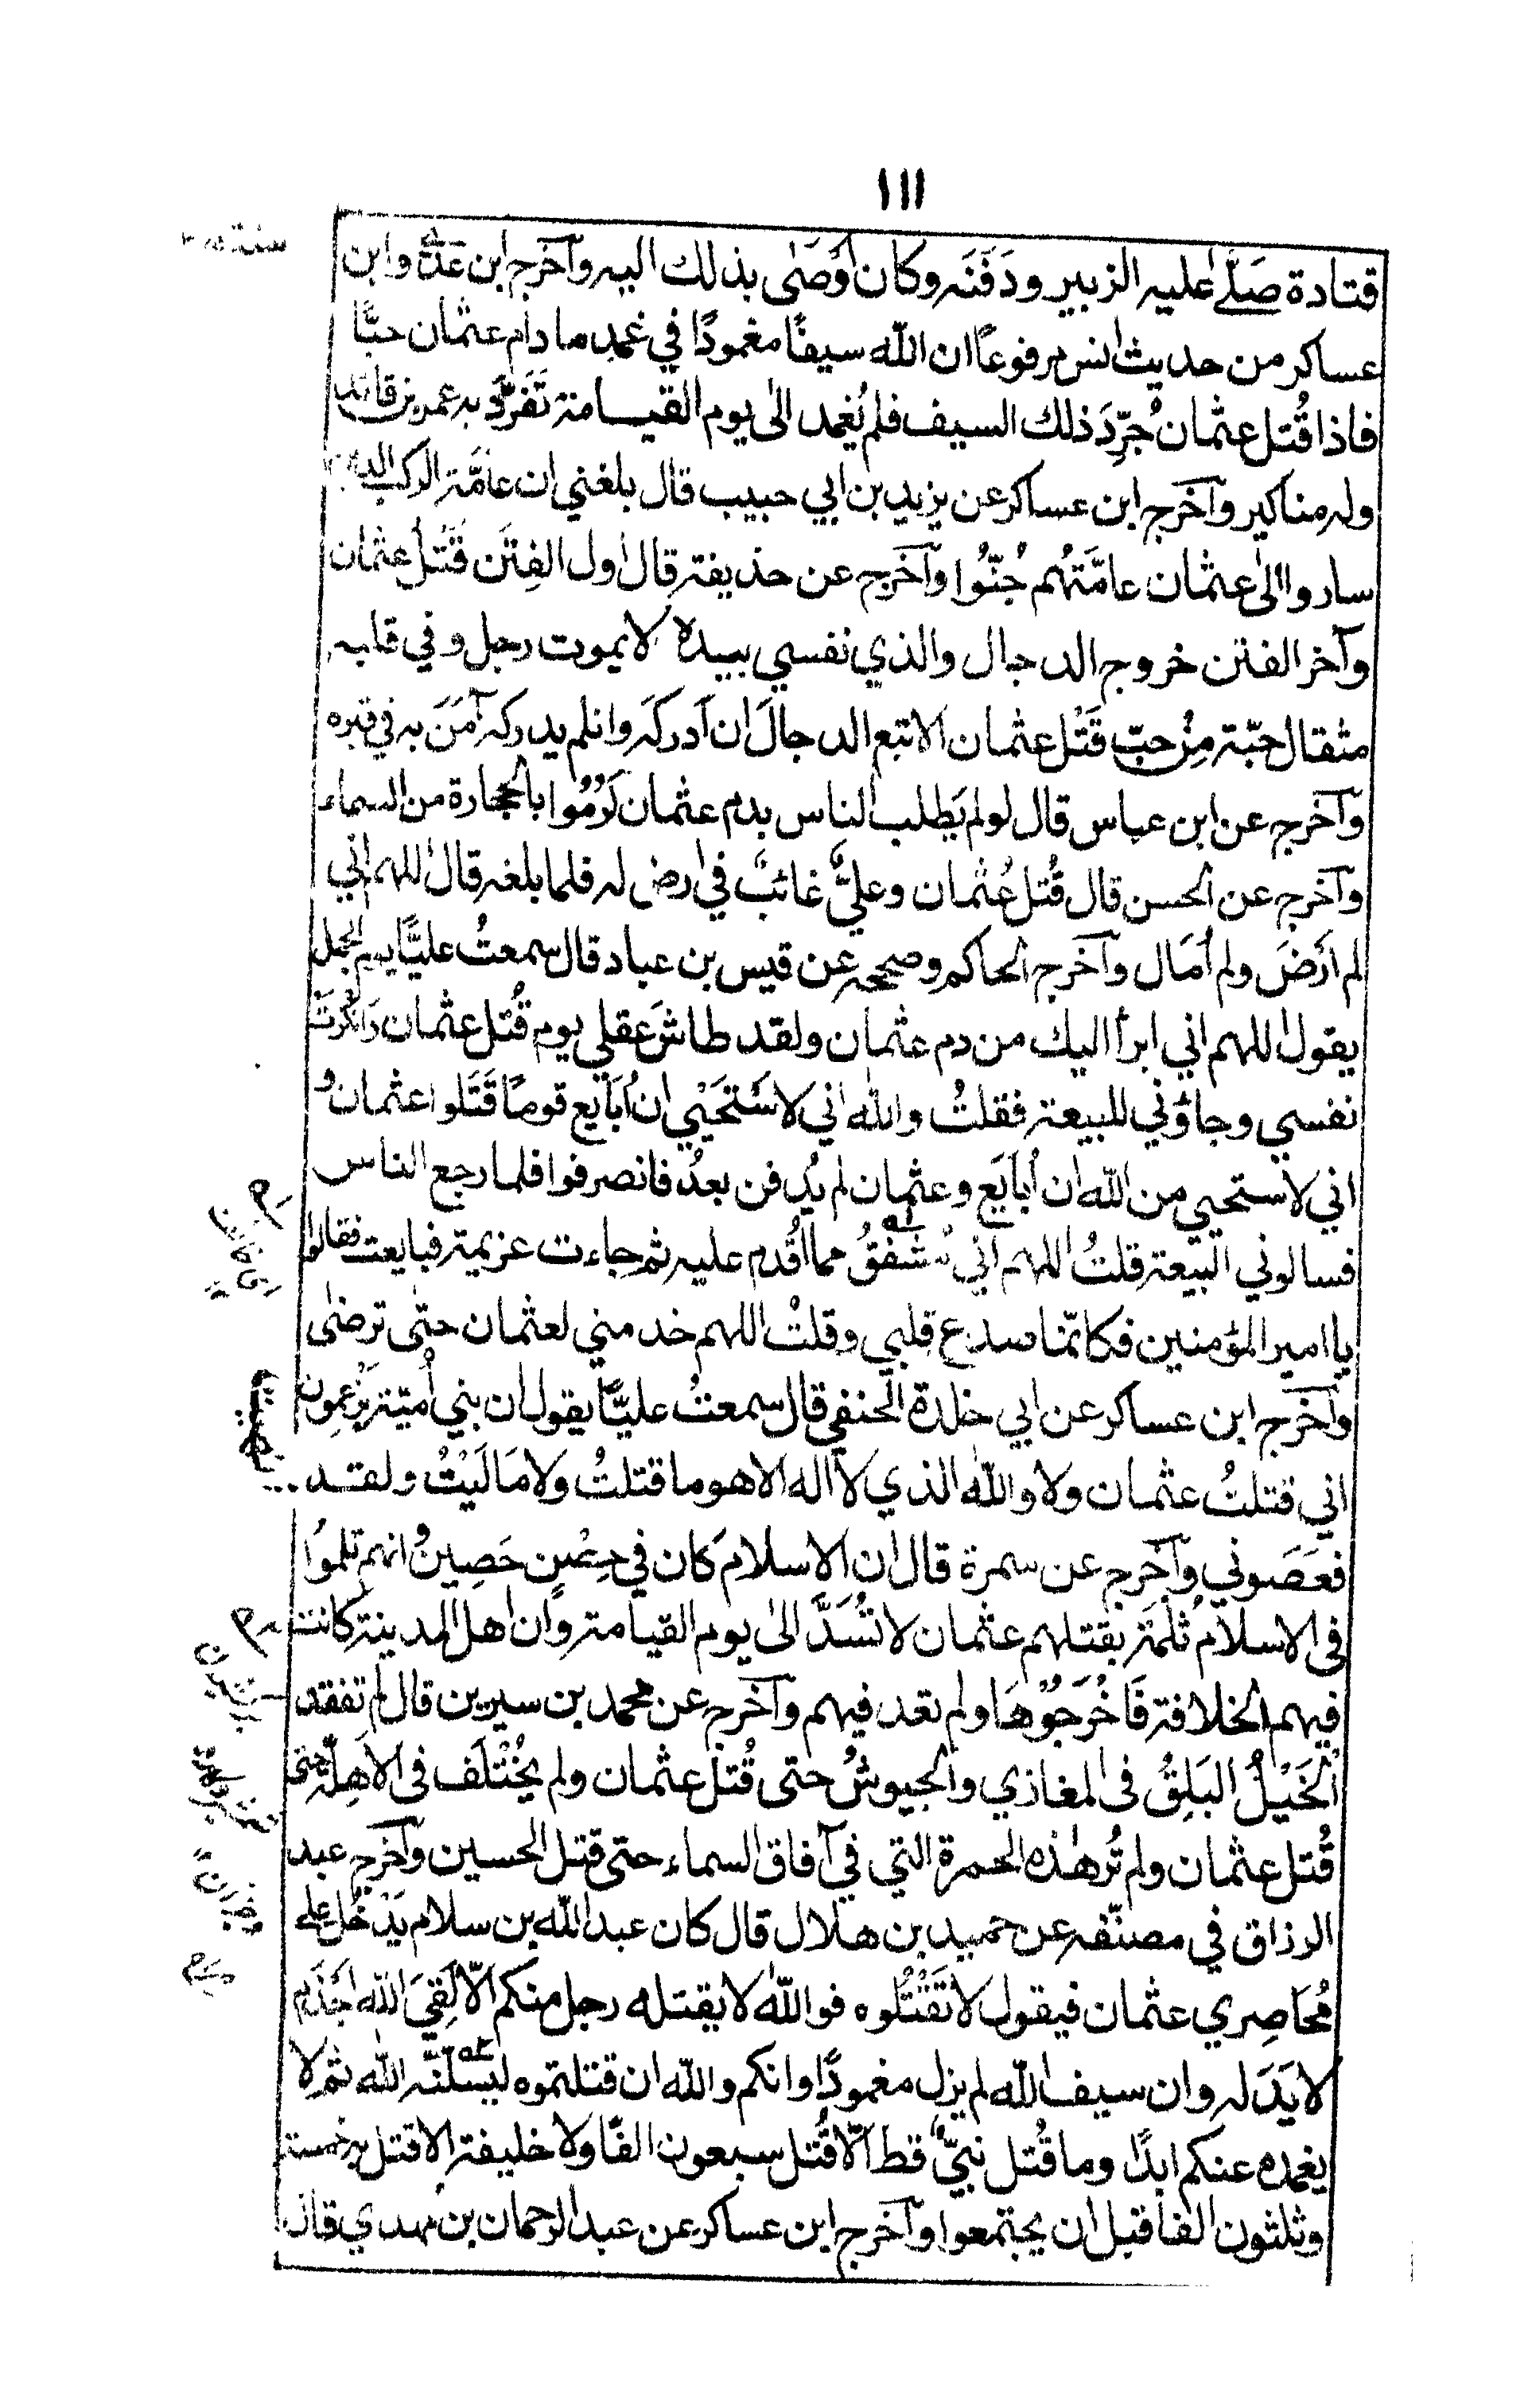 ١١١
قتادة صَلّٰے عليه الزبير ودَفَنَه وكان أَوْصٰى بذلك اليه وآخرج ابن عَدِيّ وابن
عساكر من حديث انس مرفوعاً ان الله سيفًا مغمودًا في غمدِه ما دام عثمان حيًّا
فاذا قُتل عثمان جُرِّدَ ذلك السيف فلم يُغمد الىٰ يوم القيامة تَفَرَّدَ به عمرو بن قائد
وله مناكير وآخرج ابن عساكر عن يزيد بن ابي حبيب قال بلغني ان عامَّة الركب الذين
ساروا الىٰ عثمان عامّتهُم جُنّوا وآخرج عن حذيفة قال اول الفِتَن قَتْل عثمان
وآخر الفتن خروج الدجال والذي نفسي بيده لا يموت رجل وفي قلبه
مثقال حبّة مِنْ حبّ قَتْل عثمان الا تبع الدجالَ ان اَدركَه وان لم يدركه آمَنَ به في قبره
وآخرج عن ابن عباس قال لو لم يَطلب الناس بدم عثمان لَرُمُوا بالحجارة من السماء
وآخرج عن الحسن قال قُتل عُثمان وعليٌّ غائبٌ في ارض له فلما بلغه قال اللهم اني
لم اَرْضَ ولم اُمَال وآخرج الحاكم وصححه عن قيس بن عباد قال سمعتُ عليًّا يوم الجمل
يقول اللهم اني ابرأ اليك من دم عثمان ولقد طاشَ عقلي يوم قُتل عثمان وَانكَرَتْ
نفسي وجاؤني للبيعة فقلتُ والله اني لاَسْتَحْيِي ان اُبَايع قومًا قَتَلوا عثمان و
اني لاستحيي من الله ان اُبَايَع وعثمان لم يُدفن بعدُ فانصرفوا فلما رجع الناس
فسالوني البيعة قلتُ اللهم اني مُشْفِقٌ مما اُقدم عليه ثم جاءت عزيمة فبايعت فقالوا
يا امير المؤمنين فكانّما صدع قلبي وقلتُ اللهم خد مني لعثمان حتى ترضٰى
وآخرج ابن عساكر عن ابي خلدة الحنفي قال سمعتُ عليًّا يقول ان بني اُميّة يَزْعمون
اني قتلتُ عثمان ولا والله الذي لا اله الا هو ما قتلتُ ولا مَالَيْتُ ولقد
فعَصَوني وآخرج عن سمرة قال ان الاسلام كان في حِصْنٍ حَصِين وانهم ثلموُا
فى الاسلام ثُلْمَةً بقتلهم عثمان لا تُسَدُّ الىٰ يوم القيامة وان اهل المدينة كانت
فيهم الخلافة فَاَخْرَجُوْهَا ولم تعد فيهم وآخرج عن محمد بن سيرين قال لم تفقد
الْخَيْلُ البَلِقُ فى المغازي والجيوشُ حتى قُتل عثمان ولم يُخْتَلَف فى الاَهِلَّة حتى
قُتل عثمان ولم تُر هٰذه الحمرة التي في آفاق السماء حتى قتل الحسين وآخرج عبد
الرزاق في مصنّفه عن حميد بن هلال قال كان عبد الله بن سلام يَدْخُل على
مُحَاصِري عثمان فيقول لا تَقْتُلُوه فوالله لا يقتله رجل منكم الّا لَقِيَ الله اَجْذَم
لا يَدَ له وان سيف الله لم يزل مغمودًا وانكم والله ان قتلتموه ليَسلّنّه الله ثم لا
يغمده عنكم ابدًا وما قُتل نبيٌّ قط الّا قُتل سبعون الفًا ولا خليفة الا قتل به خمسة
وثلثون الفا قبل ان يجتمعوا وآخرج ابن عساكر عن عبد الرحمان بن مهدي قال